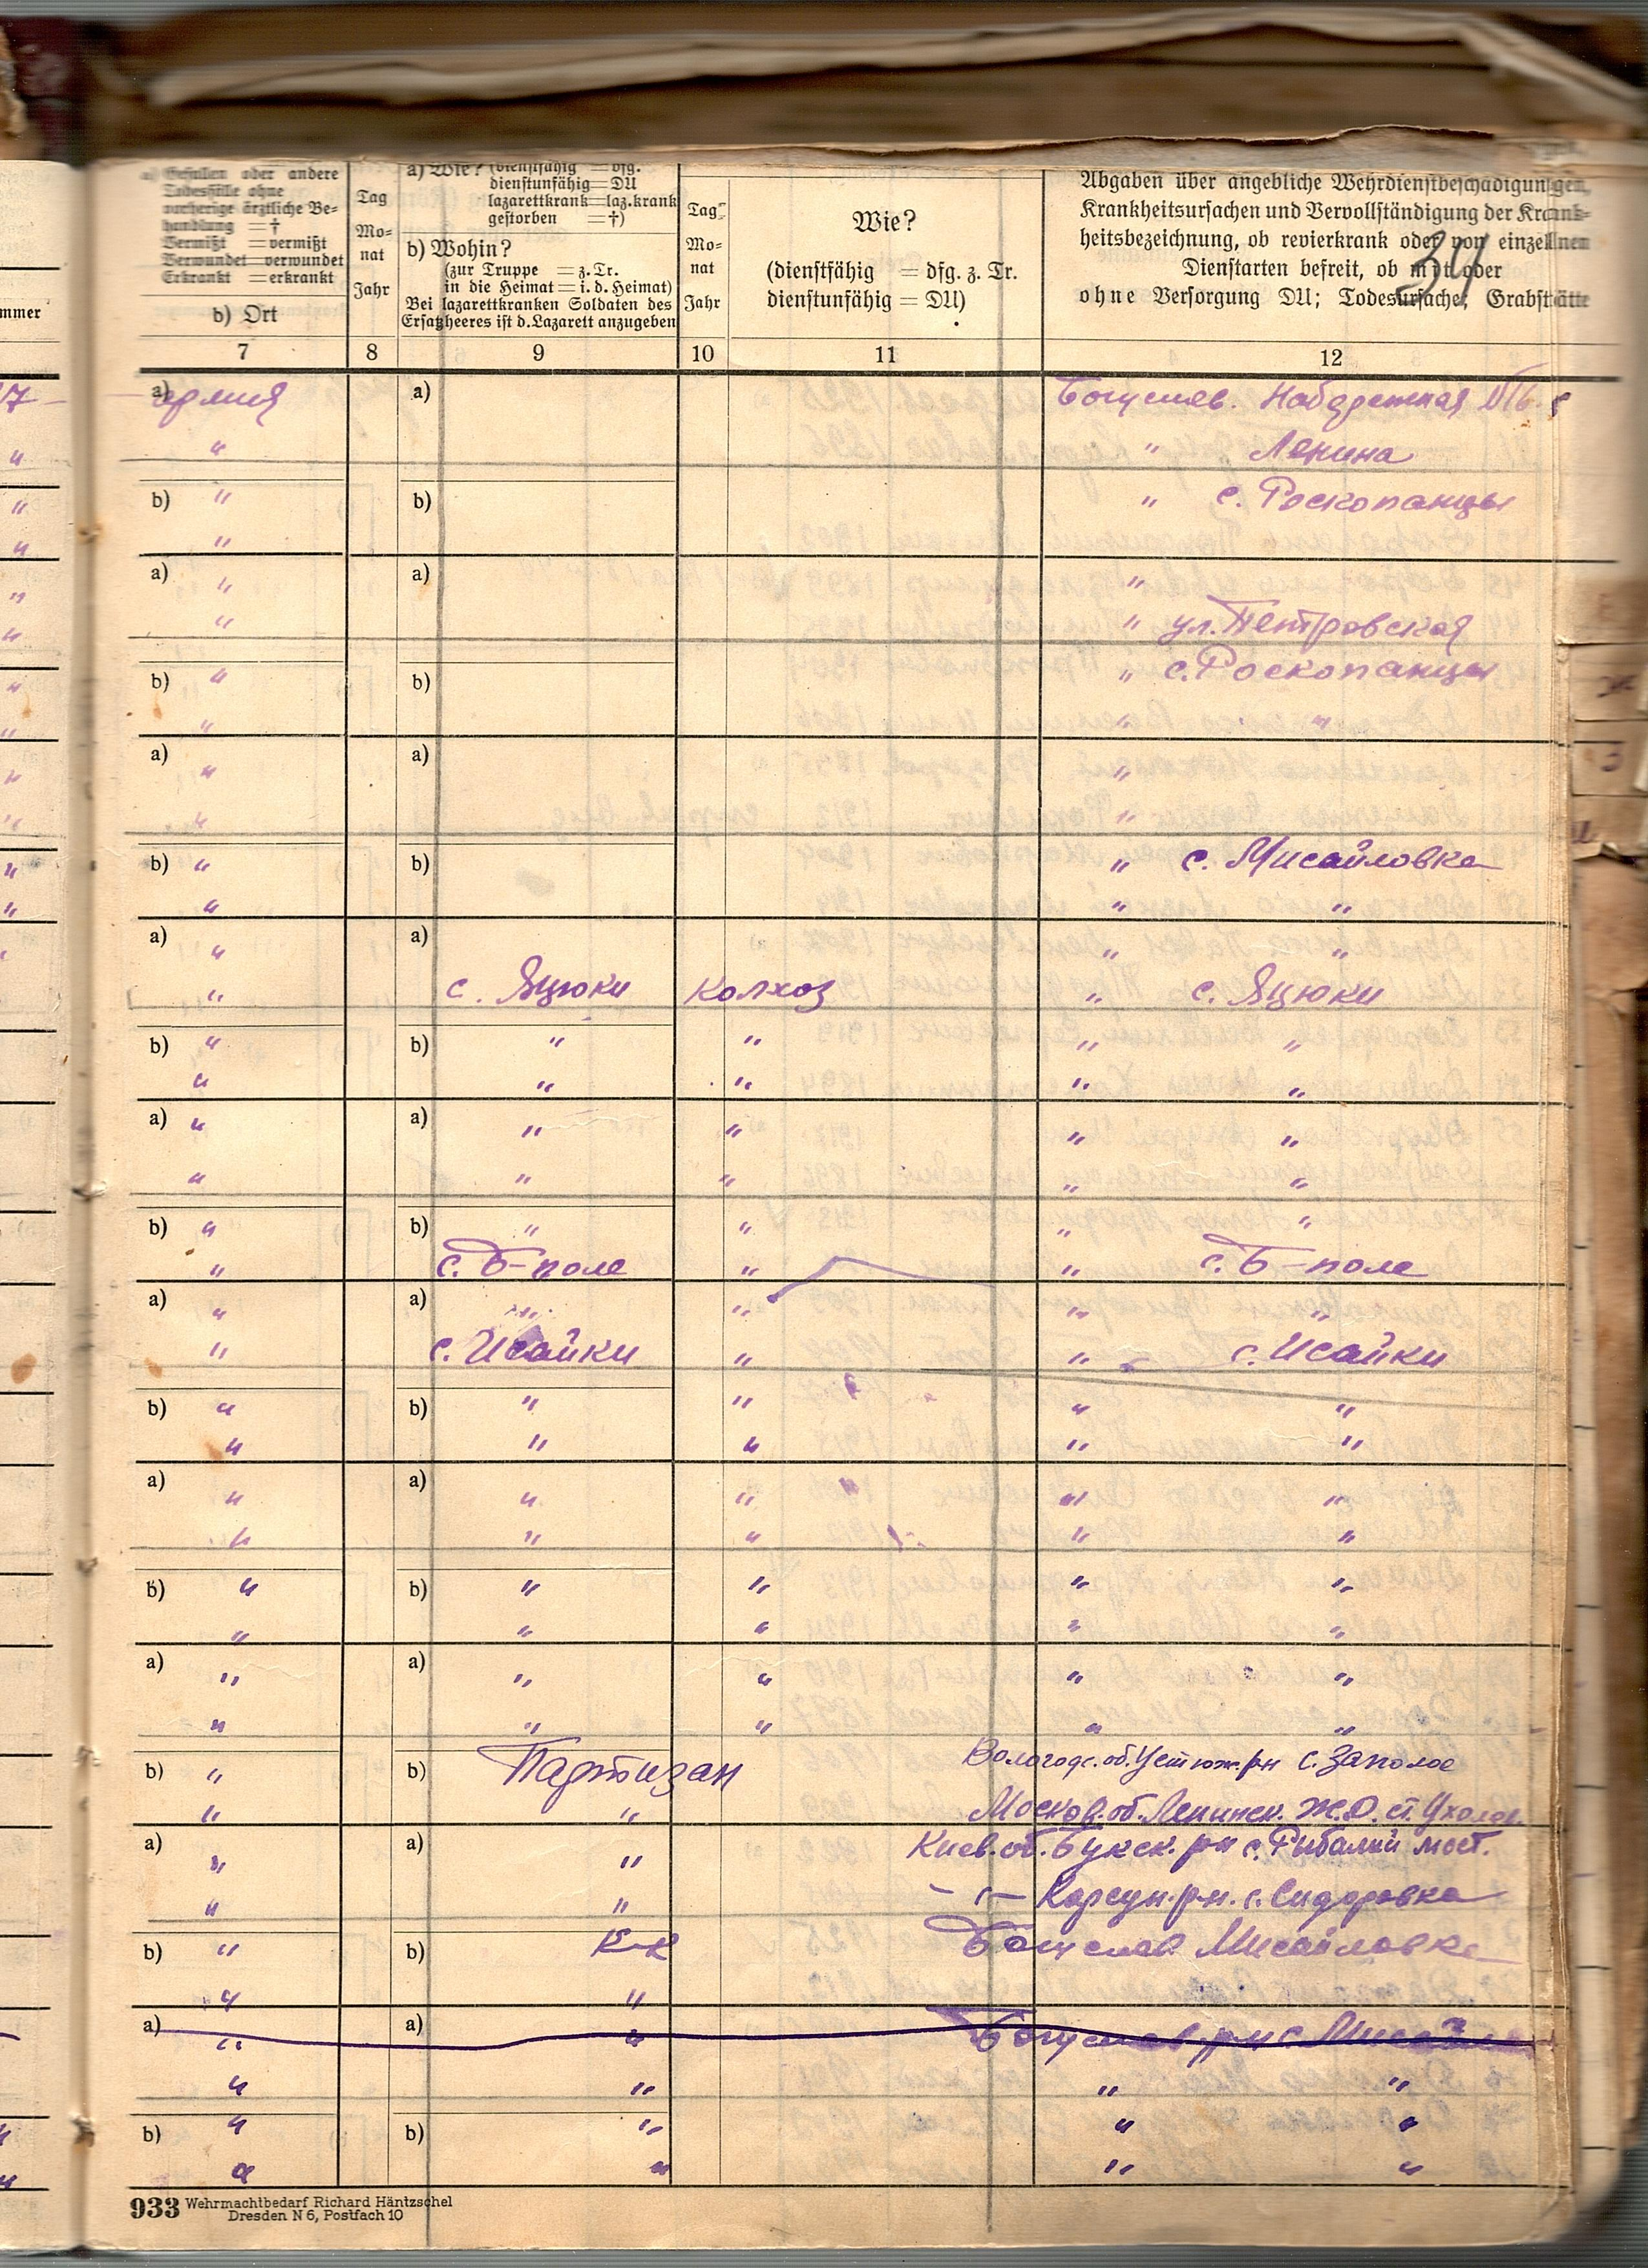 a) Gefallen oder andere
Todesfälle ohne
vorherige ärztliche Be-
handlung = †
Vermißt = vermißt
Verwundet = verwundet
Erkrankt = erkrankt
b) Ort
Tag
Mo-
nat
Jahr
a) Wie? (dienstfähig = dfg.
dienstunfähig = DU
lazarettkrank = laz.krank
gestorben = †)
b) Wohin?
(zur Truppe = z. Tr.
in die Heimat = i. d. Heimat)
Bei lazarettkranken Soldaten des
Ersatzheeres ist d. Lazarett anzugeben
Tag
Mo-
nat
Jahr
Wie?
(dienstfähig = dfg. z. Tr.
dienstunfähig = DU)
Abgaben über angebliche Wehrdienstbeschädigungen,
Krankheitsursachen und Vervollständigung der Krank-
heitsbezeichnung, ob revierkrank oder von einzelnen
Dienstarten befreit, ob mit oder
ohne Versorgung DU; Todesursache; Grabstätte
34
mmer
7 8 9 10 11 12
17 a) армия a) Богуслав. Набдрежная №16.
" " " Ленина
" b) " b) " с. Роскопанцы
" "
" a) " a) "
" " " ул. Петровская
" b) " b) " с. Роскопанцы
" " " "
" a) " a) "
" " "
" b) " b) " с. Мисайловка
" " " "
a) " a) " "
" с. Яцюки колхоз " с. Яцюки
b) " b) " " " "
" " " " "
a) " a) " " " "
" " " " "
b) " b) " " " "
" с. Б-поле " " с. Б-поле
a) " a) " " " "
" с. Исайки " " с. Исайки
b) " b) " " " "
" " " " "
a) " a) " " " "
" " " " "
b) " b) " " " "
" " " " "
a) " a) " " " "
" " " " "
b) " b) Партизан Вологодс. об. Устюж. рн с. Заполое
" " Москов. об. Ленинск. Ж.Д. ст. Ухолов.
a) " a) " Киев. об. Букск. рн с. Рибалий мост.
" " – " – Корсун. рн. с. Сидоровка
b) " b) К-к Богуслав Мисайловка
" "
a) " a) " Богуслав рн с Мисайл
" " " "
" b) " b) " " "
" " " " "
933 Wehrmachtbedarf Richard Häntzschel
Dresden N 6, Postfach 10